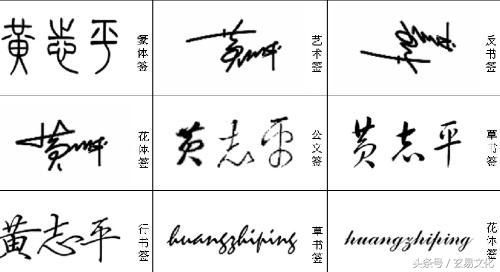 黄志平
篆体签
黄志平
艺术签
黄志平
反书签
黄志平
花体签
黄志平
公文签
黄志平
草书签
黄志平
行书签
huangzhiping
草书签
huangzhiping
花体签
头条号／玄易文化